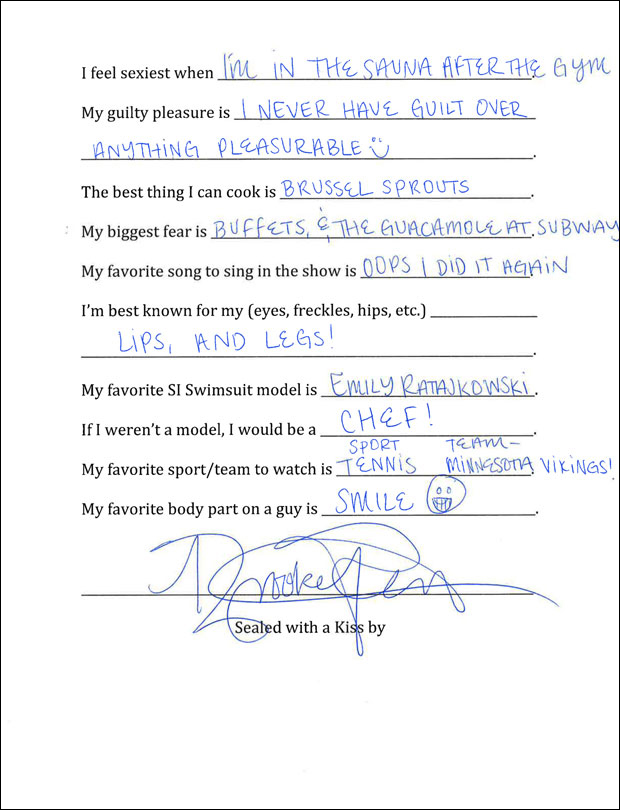 I feel sexiest when I'm IN THE SAUNA AFTER THE GYM
My guilty pleasure is I NEVER HAVE GUILT OVER
ANYTHING PLEASURABLE.
The best thing I can cook is BRUSSEL SPROUTS.
My biggest fear is BUFFETS, & THE GUACAMOLE AT SUBWAY.
My favorite song to sing in the show is OOPS I DID IT AGAIN
I'm best known for my (eyes, freckles, hips, etc.)
LIPS, AND LEGS!.
My favorite SI Swimsuit model is EMILY RATAJKOWSKI.
If I weren't a model, I would be a CHEF!.
SPORT TEAM-
My favorite sport/team to watch is TENNIS MINNESOTA VIKINGS!
My favorite body part on a guy is SMILE.
Brooke
Sealed with a Kiss by